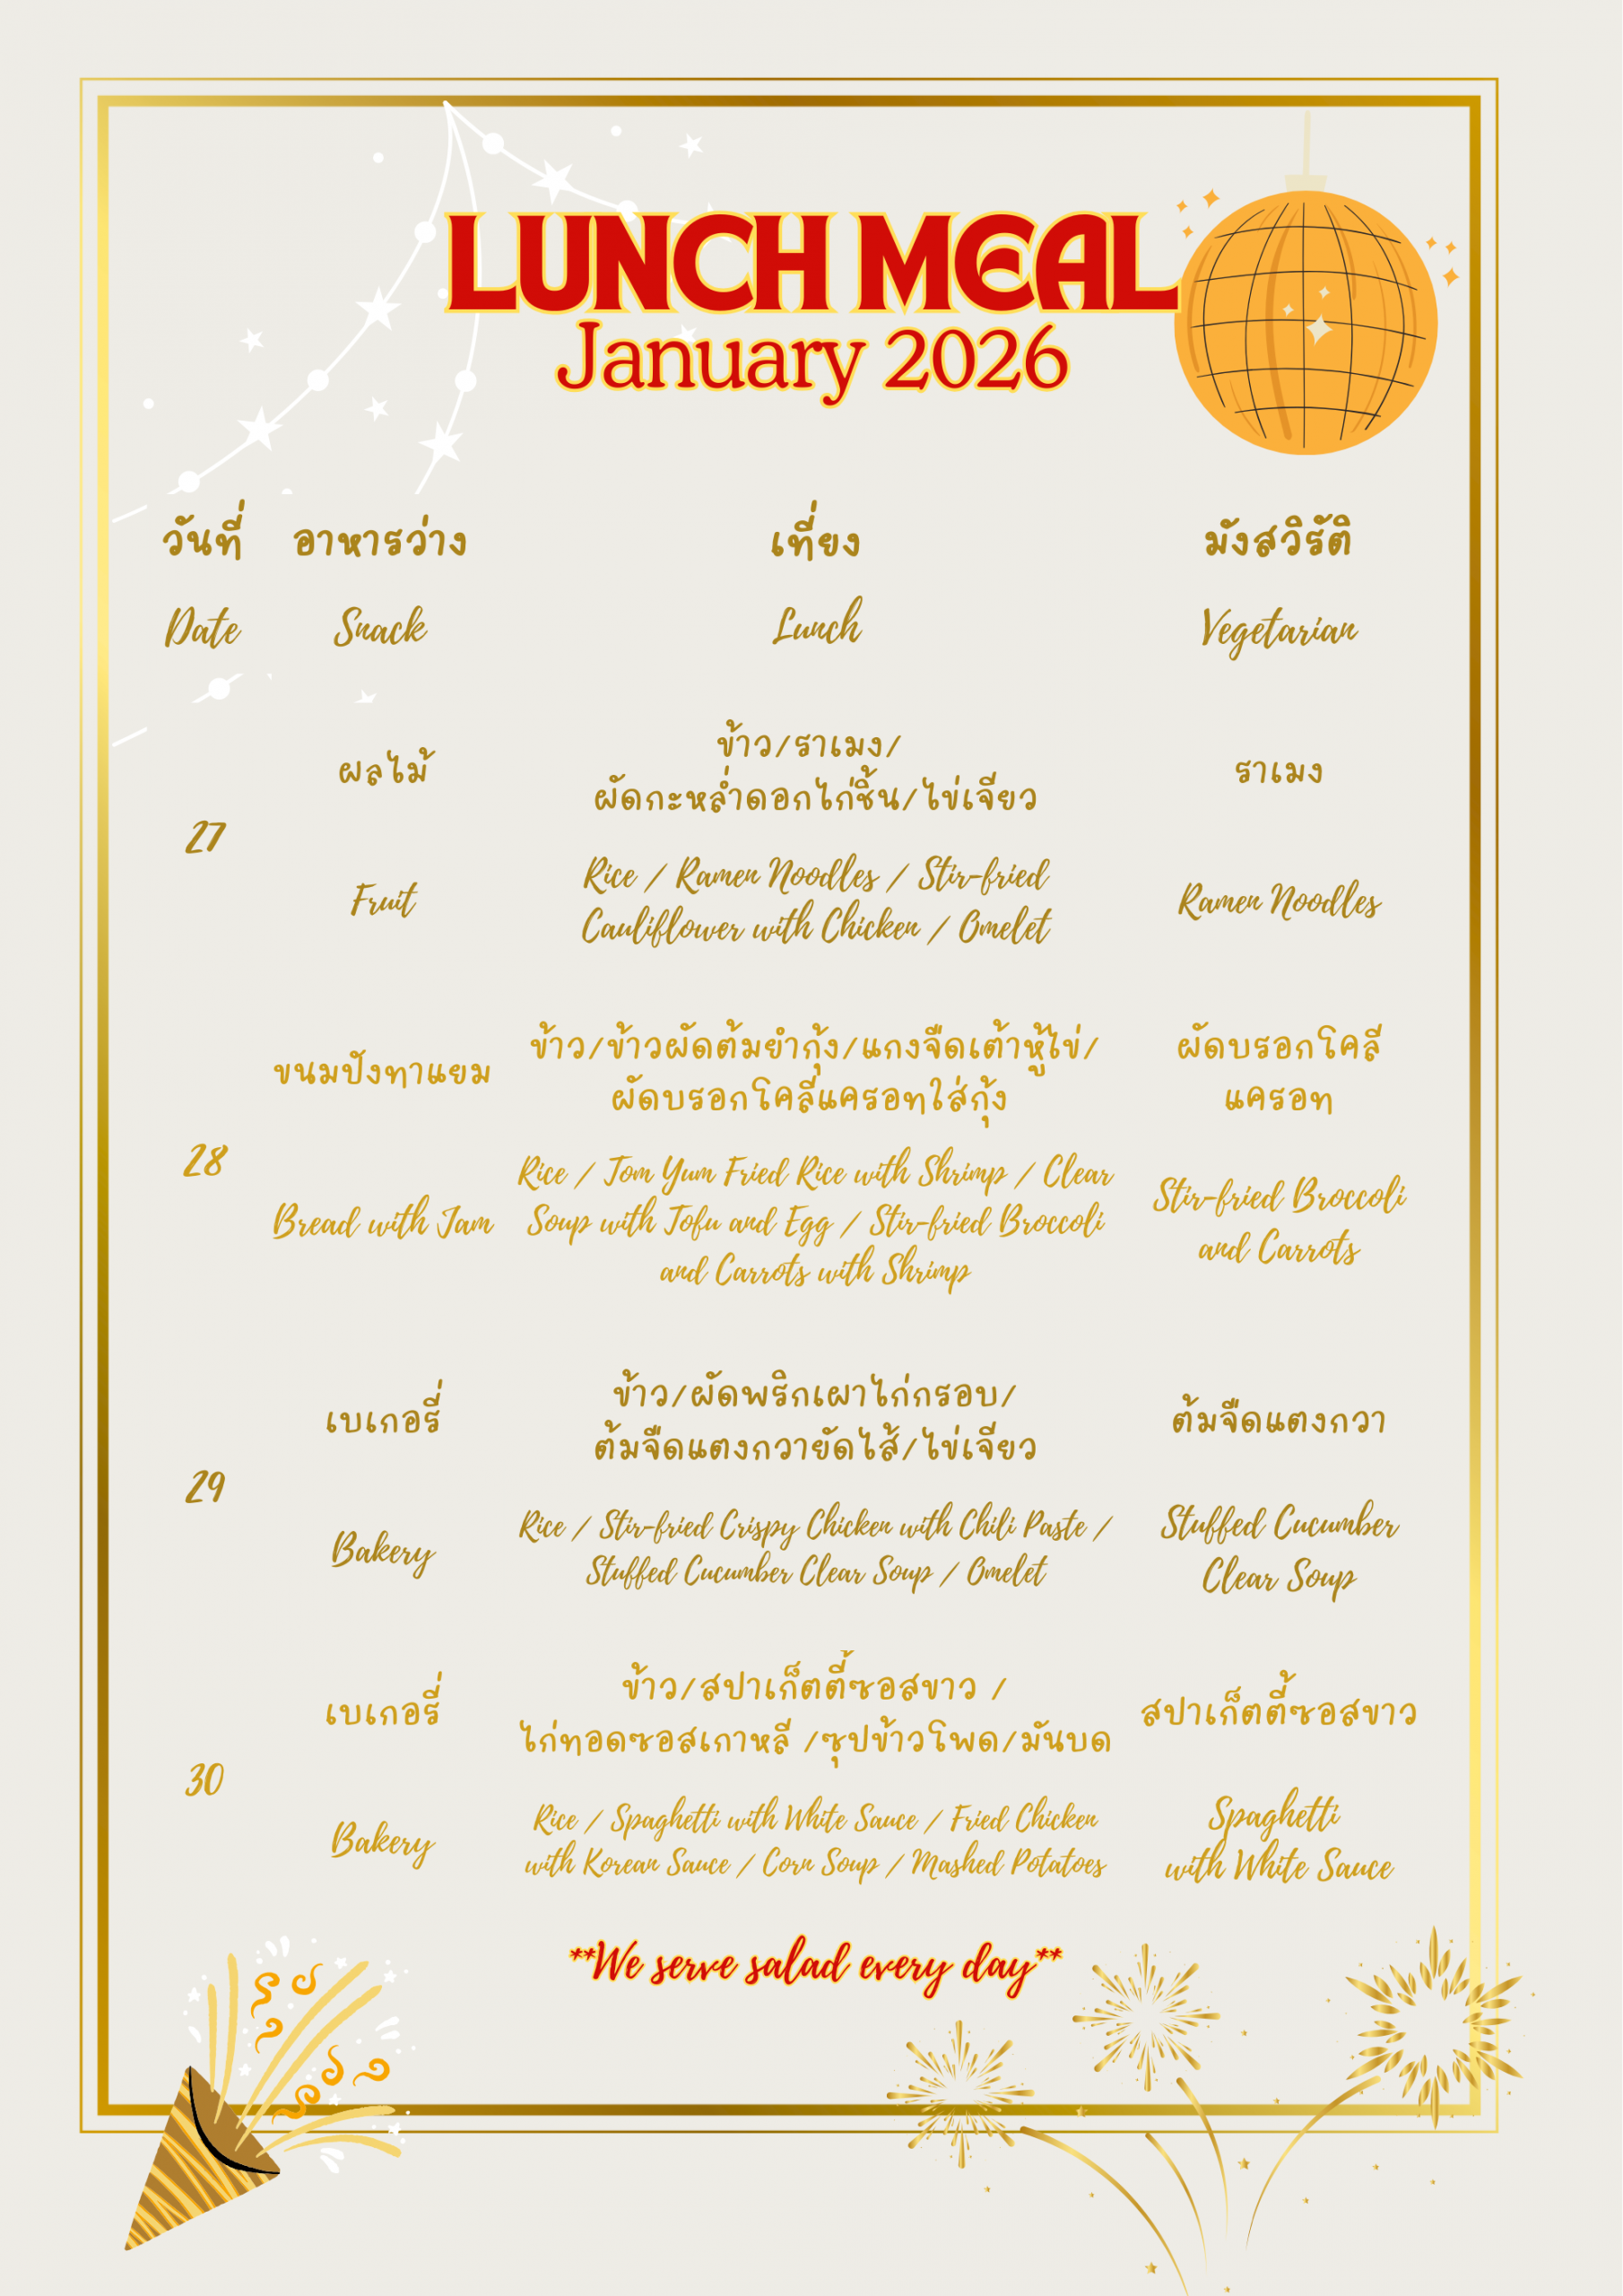 LUNCH MEAL
January 2026
วันที่ อาหารว่าง เที่ยง มังสวิรัติ
Date Snack Lunch Vegetarian
27
ผลไม้
Fruit
ข้าว/ราเมง/
ผัดกะหล่ำดอกไก่ชิ้น/ไข่เจียว
Rice / Ramen Noodles / Stir-fried
Cauliflower with Chicken / Omelet
ราเมง
Ramen Noodles
28
ขนมปังทาแยม
Bread with Jam
ข้าว/ข้าวผัดต้มยำกุ้ง/แกงจืดเต้าหู้ไข่/
ผัดบรอกโคลี่แครอทใส่กุ้ง
Rice / Tom Yum Fried Rice with Shrimp / Clear
Soup with Tofu and Egg / Stir-fried Broccoli
and Carrots with Shrimp
ผัดบรอกโคลี่
แครอท
Stir-fried Broccoli
and Carrots
29
เบเกอรี่
Bakery
ข้าว/ผัดพริกเผาไก่กรอบ/
ต้มจืดแตงกวายัดไส้/ไข่เจียว
Rice / Stir-fried Crispy Chicken with Chili Paste /
Stuffed Cucumber Clear Soup / Omelet
ต้มจืดแตงกวา
Stuffed Cucumber
Clear Soup
30
เบเกอรี่
Bakery
ข้าว/สปาเก็ตตี้ซอสขาว /
ไก่ทอดซอสเกาหลี /ซุปข้าวโพด/มันบด
Rice / Spaghetti with White Sauce / Fried Chicken
with Korean Sauce / Corn Soup / Mashed Potatoes
สปาเก็ตตี้ซอสขาว
Spaghetti
with White Sauce
**We serve salad every day**